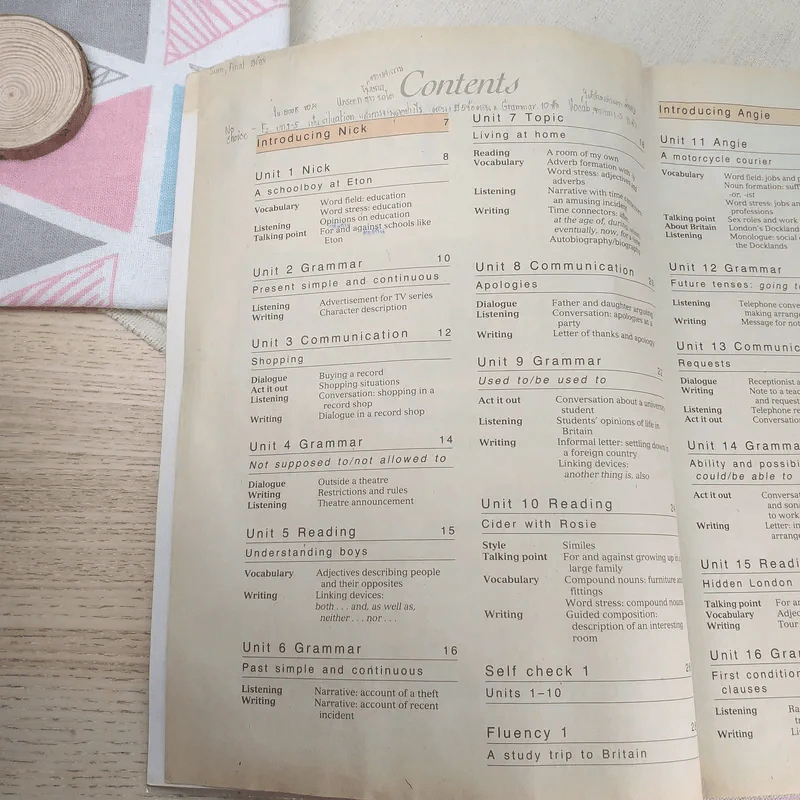 Contents
Introducing Nick 7
Unit 1 Nick 8
A schoolboy at Eton
Vocabulary Word field: education
Word stress: education
Listening Opinions on education
Talking point For and against schools like
Eton
Unit 2 Grammar 10
Present simple and continuous
Listening Advertisement for TV series
Writing Character description
Unit 3 Communication 12
Shopping
Dialogue Buying a record
Act it out Shopping situations
Listening Conversation: shopping in a
record shop
Writing Dialogue in a record shop
Unit 4 Grammar 14
Not supposed to/not allowed to
Dialogue Outside a theatre
Writing Restrictions and rules
Listening Theatre announcement
Unit 5 Reading 15
Understanding boys
Vocabulary Adjectives describing people
and their opposites
Writing Linking devices:
both . . . and, as well as,
neither . . . nor . . .
Unit 6 Grammar 16
Past simple and continuous
Listening Narrative: account of a theft
Writing Narrative: account of recent
incident
Unit 7 Topic
Living at home
Reading A room of my own
Vocabulary Adverb formation with
Word stress: adjectives and
adverbs
Listening Narrative with time
an amusing incident
Writing Time connectors:
at the age of, during
eventually, now, for
Autobiography/biography
Unit 8 Communication
Apologies
Dialogue Father and daughter arguing
Listening Conversation: apologies at a
party
Writing Letter of thanks and apology
Unit 9 Grammar
Used to/be used to
Act it out Conversation about a university
student
Listening Students' opinions of life in
Britain
Writing Informal letter: settling down in
a foreign country
Linking devices:
another thing is, also
Unit 10 Reading
Cider with Rosie
Style Similes
Talking point For and against growing up in a
large family
Vocabulary Compound nouns: furniture and
fittings
Word stress: compound nouns
Writing Guided composition:
description of an interesting
room
Self check 1
Units 1–10
Fluency 1
A study trip to Britain
Introducing Angie
Unit 11 Angie
A motorcycle courier
Vocabulary Word field: jobs and
Noun formation:
-or, -ist
Word stress: jobs and
professions
Talking point Sex roles and work
About Britain London's Docklands
Listening Monologue: social
the Docklands
Unit 12 Grammar
Future tenses: going to
Listening Telephone
making
Writing Message for
Unit 13
Requests
Dialogue Receptionist
Writing Note to a
and
Listening Telephone
Act it out
Unit 14
Ability and
could/be able to
Act it out
and
to work
Writing Letter:
Unit 15
Hidden London
Talking point For
Vocabulary
Writing Tour
Unit 16
First
clauses
Listening
Writing